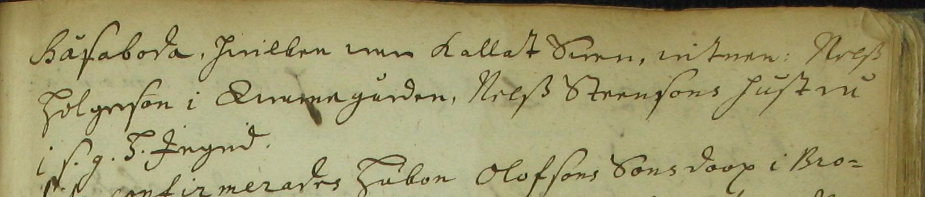 Båsaboda, hwilken war kallat Swen, witnen: Nilß
Holgerson i Qwarnegården, Nilß Steensons hustru
i s. g. H. Ingrid.
confirmerades Håkon Olofsons Sons doop i Bro=